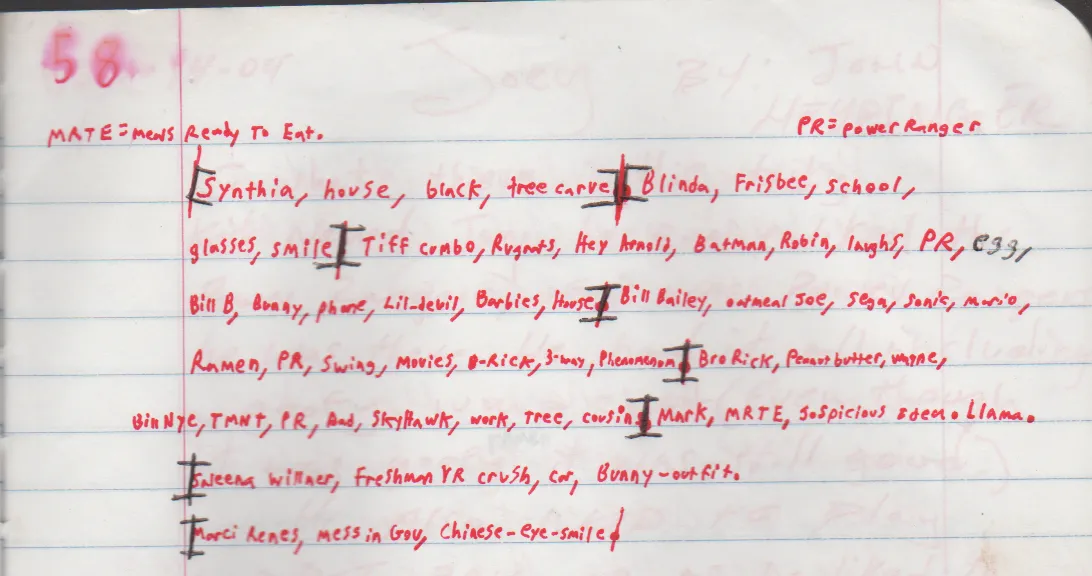 58
MRTE = meals Ready To Eat. PR = power Ranger
[Synthia, house, black, tree carve] Blinda, Frisbee, school,
glasses, smile] Tiff combo, Rugrats, Hey Arnold, Batman, Robin, laughs, PR, egg,
Bill B, Bunny, phone, Lil-devil, Barbies, House] Bill Bailey, oatmeal Joe, Sega, sonic, mario,
Ramen, PR, Swing, Movies, B-Rick, 3-way, Phenomenom] Bro Rick, Peanut butter, wayne,
Bill Nye, TMNT, PR, Dad, SkyHawk, work, Tree, cousin] Mark, MRTE, Sospicious Llama.
willner, Freshman YR crush, car, Bunny-outfit.
Marci Renes, mess in Gov, Chinese-eye-smile